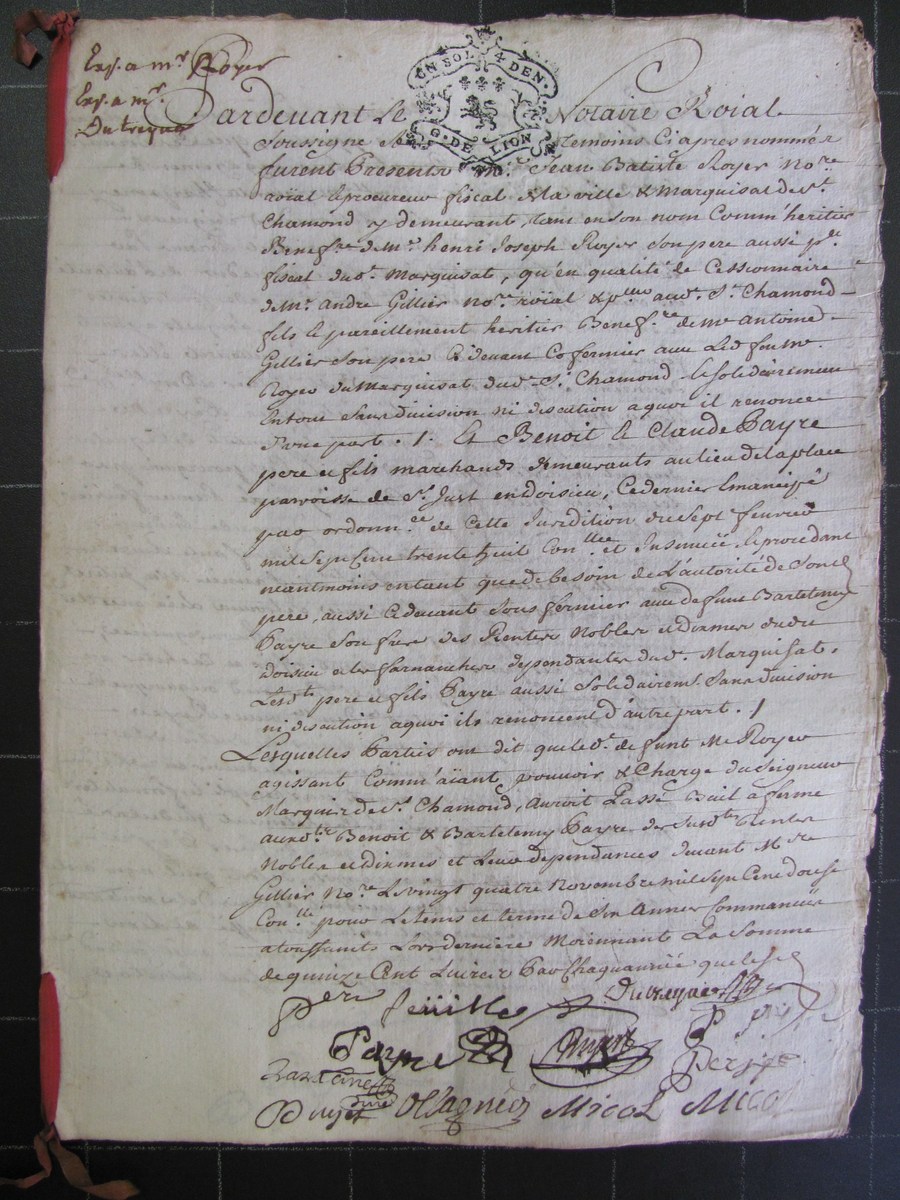 Exp. a mr Royer
Exp. a mr
Dutreyve
UN SOL 4 DEN.
G. DE LION
Pardevant Le Notaire Roial
Soussigné Et temoins Ci apres nommés
furent Presents Mr. Jean Batiste Royer nore
roïal & procureur fiscal de la ville & Marquisat de St.
Chamond y demeurant, tant en son nom Comm'heritier
Beneffre de Mr. henri Joseph Royer son pere aussi pr.
fiscal dud. Marquisat, qu'en qualité de Cessionnaire
de Mr. andré Gillier nore roïal & aud. St. Chamond
fils & pareillement heritier Beneffre de me antoine
Gillier son pere Cidevant Cofermier avec Led feu me.
Royer du Marquisat dud. St. Chamond & solidairement
Entout sans division ni discution aquoi il renonce
d'une part. /. Et Benoit & Claude Payre
pere et fils marchands demeurants au lieu de la place
parroisse de St. Just en doisieu, Ce dernier Emancipé
par ordonnce de Cette Juridition du sept fevrier
mil sept Cent trente huit Conllée et Insinuée & procedant
neantmoins entant que de besoin de L'autorité de Sond
pere, aussi Cidevant sous fermier avec defunt Bartelemy
Payre son frere des Rentes Nobles et dixmes dudit
doisieu et les farnanches dependantes dud. Marquisat.
Lesdts pere et fils Payre aussi solidairemt. sans division
ni discution aquoi ils renoncent d'autre part. /
Lesquelles Parties ont dit que led. defunt Me Royer
agissant Comm'aïant pouvoir & Charge du seigneur
Marquis de St. Chamond, auroit Passé Bail a ferme
auxdts Benoit & Bartelemy Payre des susdts Rentes
Nobles et dixmes et Leurs dependances devant Mre
Gillier Nore Le vingt quatre Novembre mil sept Cent douse
Conllé pour Le tems et terme de six Années Commancées
a toussaints Lors derniere Moiennant La Somme
de quinze Cent Livres Par Chaqu'année que les
Pere feüille Dutreyve
Payre
Puyet Ollagnier Micol Micol